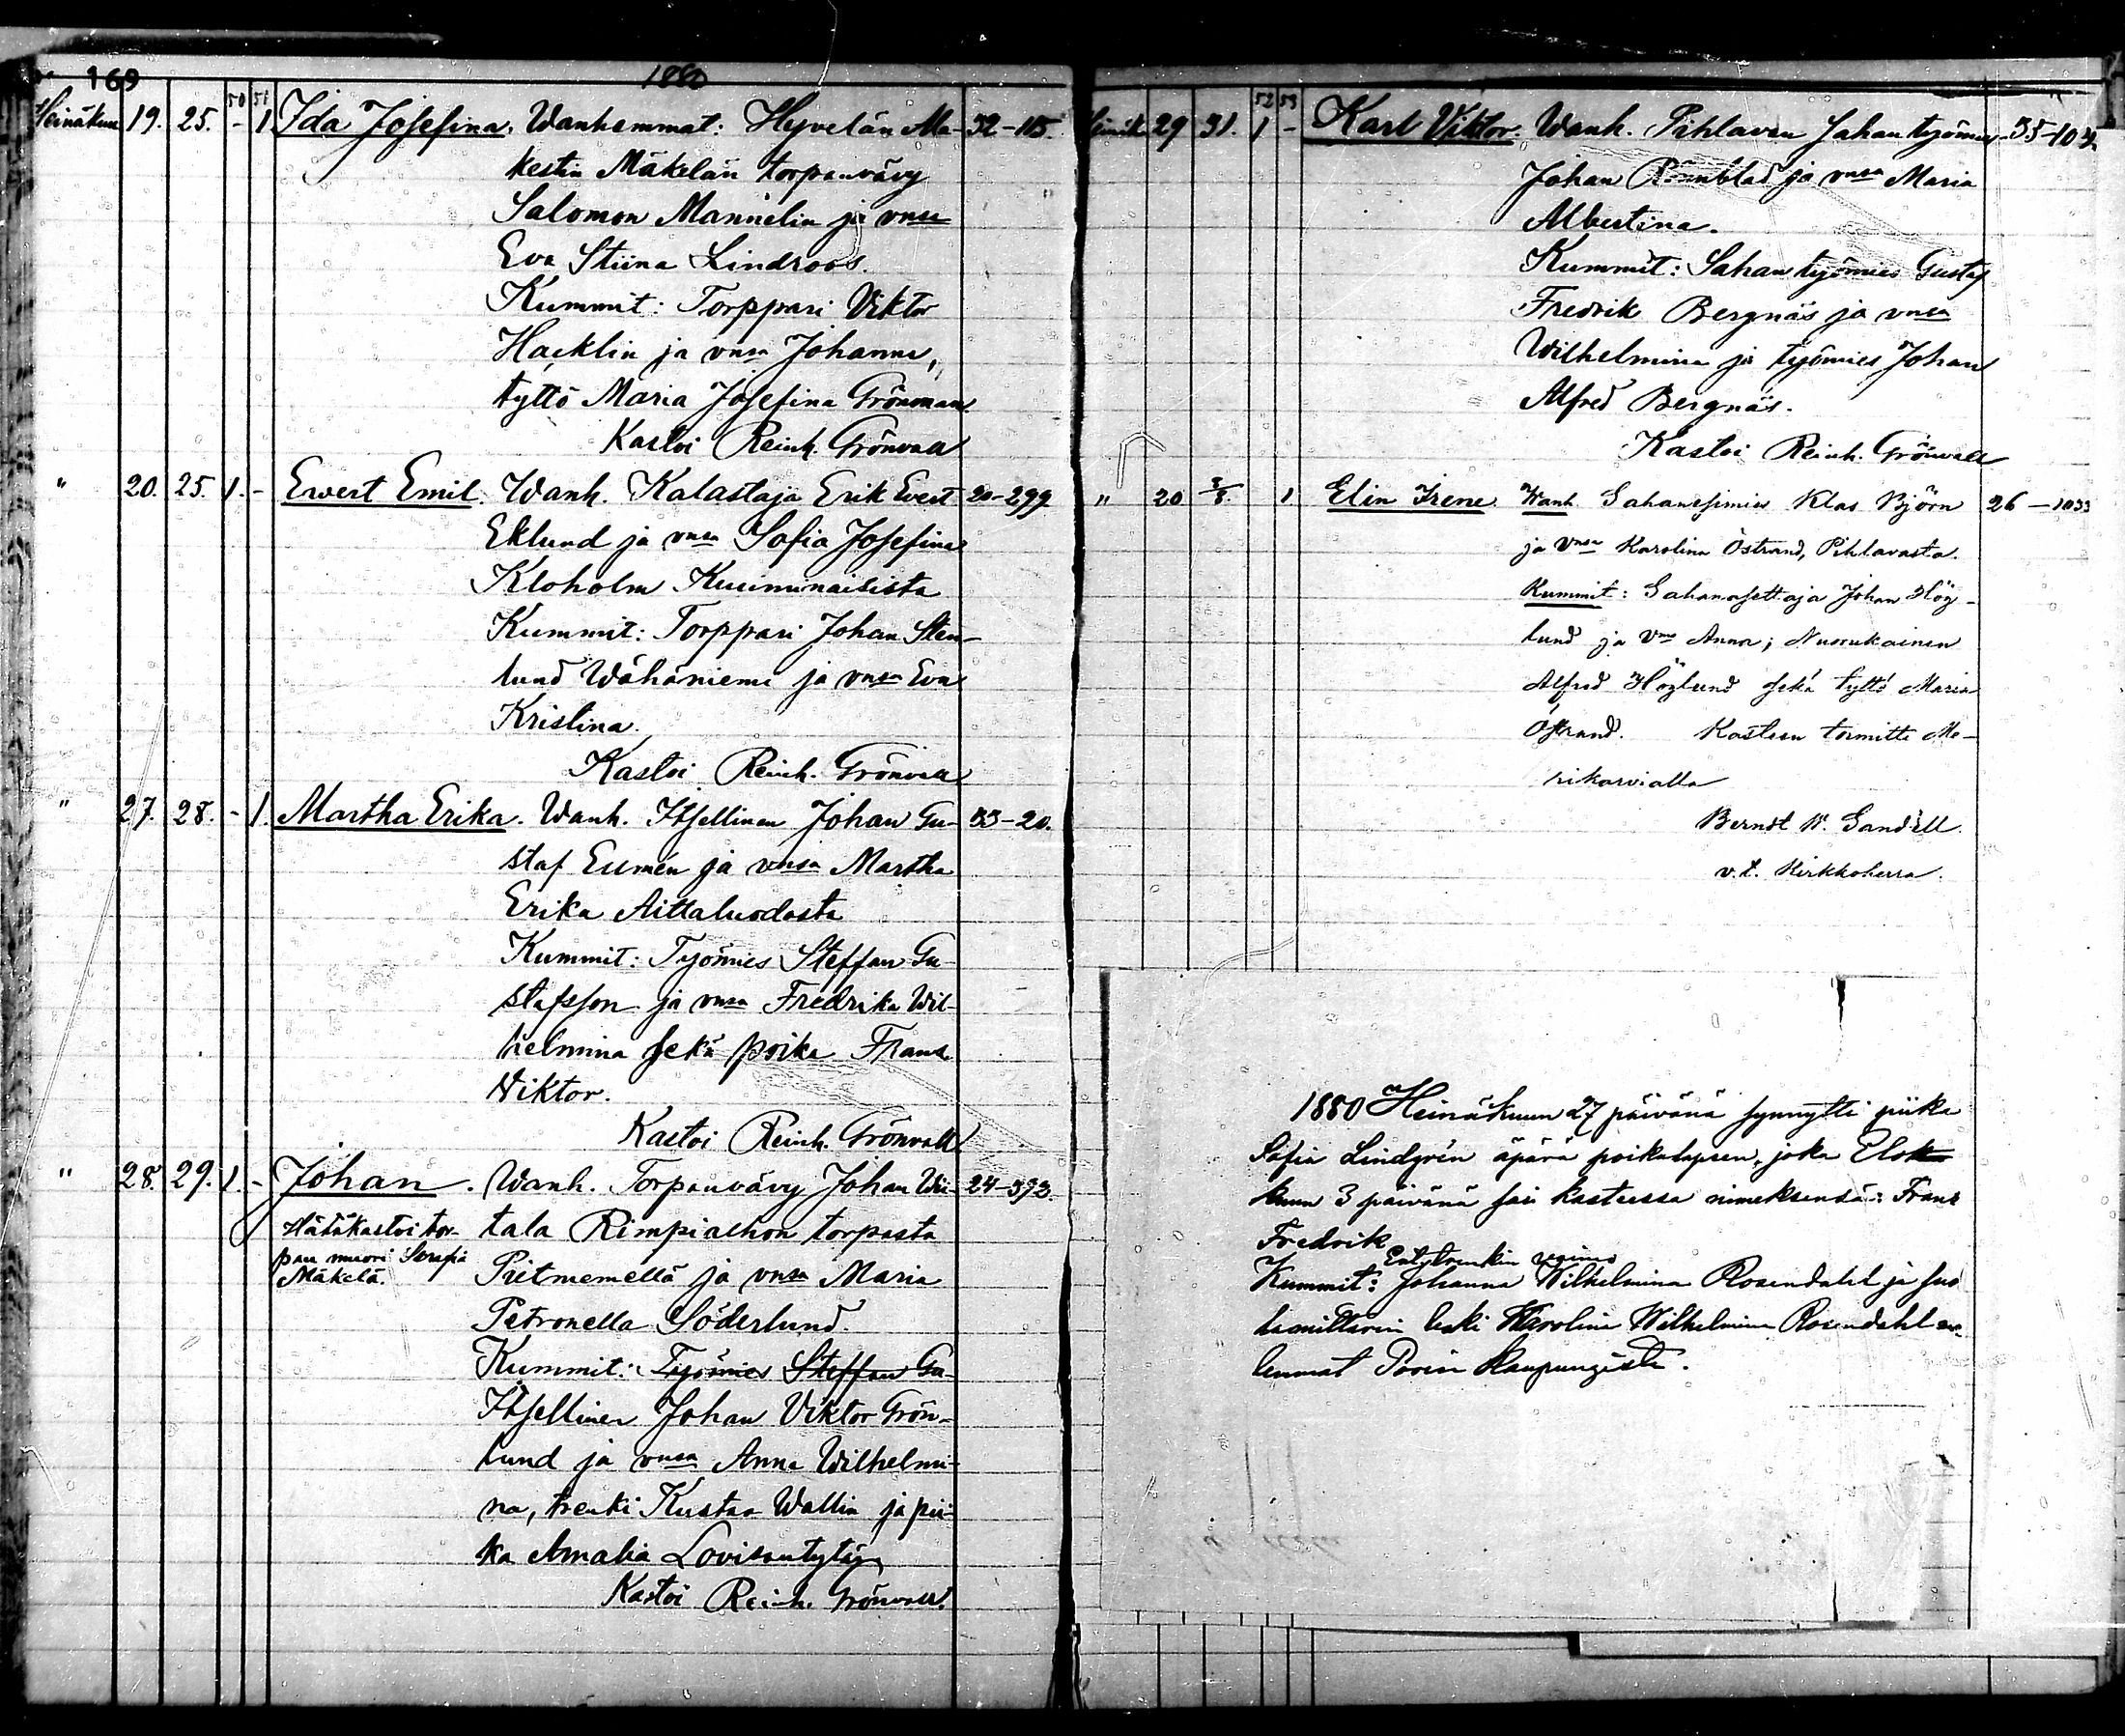 169
1880
50 51
Heinäkuu 19. 25. - 1 Ida Josefina. Wanhemmat: Hyvelän Ma- 32-115
kestin Mäkelän torpanvävy
Salomon Mannelin ja vnsa
Eva Stiina Lindroos.
Kummit: Torppari Viktor
Hacklin ja vnsa Johanna,
tyttö Maria Josefina Grönman.
Kastoi Reinh. Grönvall
" 20. 25. 1. - Ewert Emil. Wanh. Kalastaja Erik Evert 20-299.
Eklund ja vnsa Sofia Josefina
Kloholm Kuuminaisista
Kummit: Torppari Johan Sten-
lund Wähäniemi ja vnsa Eva
Kristina.
Kastoi Reinh. Grönvall
" 27. 28. - 1. Martha Erika. Wanh. Itsellinen Johan Gu- 53-20.
staf Eumén ja vnsa Martha
Erika Aittaluodosta
Kummit: Työmies Steffan Gu-
stafsson ja vnsa Fredrika Wil-
helmina sekä poika Frans
Viktor.
Kastoi Reinh. Grönvall
" 28. 29. 1. - Johan. Wanh. Torpanvävy Johan Wii- 24-392.
Hätäkastoi tor-
pan muori Serafia
Mäkelä.
tala Rimpiahon torpasta
Pietniemellä ja vnsa Maria
Petronella Söderlund.
Kummit: Työmies Steffan Gu-
Itsellinen Johan Viktor Grön-
lund ja vnsa Anna Wilhelmi-
na, trenki Kustaa Wallin ja pii-
ka Amalia Lovisantytär
Kastoi Reinh. Grönvall.
52 53
Heinäk 29 31. 1 - Karl Viktor. Wanh. Pihlavan Sahan työmies 55-103.
Johan Rönnblad ja vnsa Maria
Albertina.
Kummit: Sahan työmies Gustaf
Fredrik Bergnäs ja vnsa
Wilhelmina ja työmies Johan
Alfred Bergnäs.
Kastoi Reinh. Grönvall
" 20 3/8. 1. Elin Irene. Wanh Sahanesimies Klas Björn 26-1033
ja Vnsa Karolina Östrand, Pihlavasta.
Kummit: Sahanasettaja Johan Hög-
lund ja Vmo Anna; Nuorukainen
Alfred Höglund sekä tyttö Maria
Östrand. Kasteen toimitti Me-
rikarvialla
Berndt W. Sandell.
v.t. Kirkkoherra.
1880 Heinäkuun 27 päivänä synnytti piika
Sofia Lindgrén äpärä poikalapsen, joka Elok
kuun 3 päivänä sai kasteessa nimeksensä: Frans
Fredrik
Kummit: Johanna Wilhelmina Rosendahl ja
leski Karolina Wilhelmina Rosendahl mo-
lemmat Porin Kaupungista.